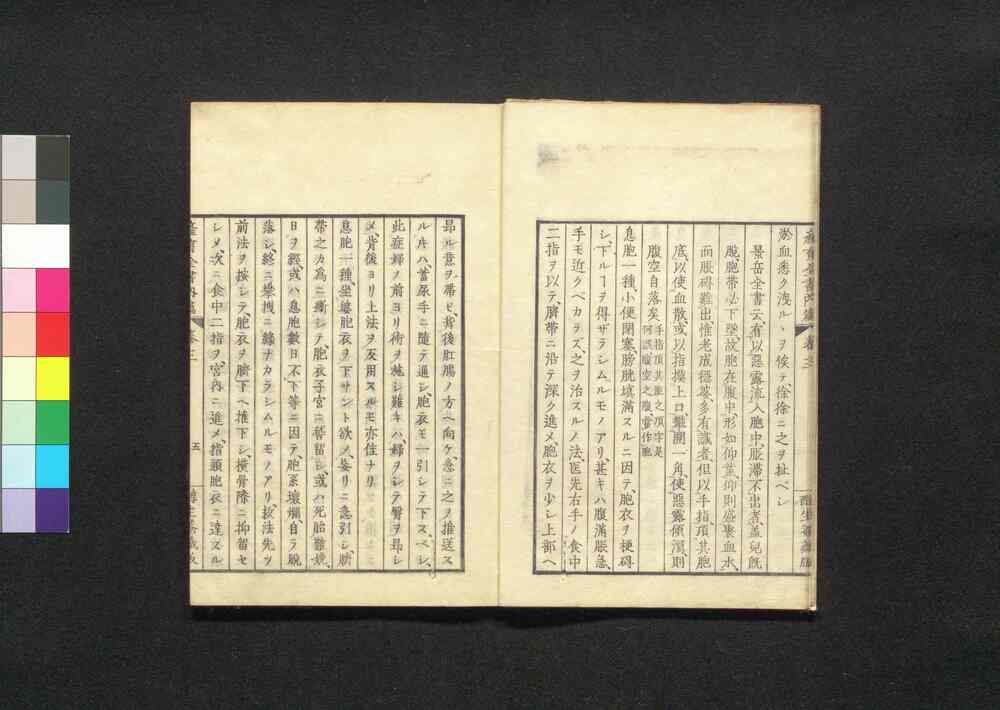 淤血悉ク洩ルヽヲ俟テ徐徐ニ之ヲ扯ベシ
景岳全書云有以惡露流入胞中脹滯不出者蓋兒既
脫胞帶必下墜故胞在腹中形如仰葉仰則盛聚血水
而脹礙難出惟老成穩婆多有識者但以手指頂其胞
底以使血散或以指摸上口攀開一角使惡露傾瀉則
腹空自落矣
手指頂其胞之頂字是
何誤腹空之腹當作胞
息胞一種小便閉塞膀胱填滿スルニ因テ胞衣ヲ梗碍
シ下ルヿヲ得ザラシムルモノアリ甚キハ腹滿脹急
手モ近クベカラズ之ヲ治スルノ法医先右手ノ食中
二指ヲ以テ臍帶ニ沿テ深ク進メ胞衣ヲ少シ上部ヘ
昂ル意ヲ帶ビ背後肛膓ノ方ヘ向ケ急ニ之ヲ推送ス
ル片ハ蓄尿手ニ隨テ通シ胞衣モ一引シテ下スベシ
此症婦ノ前ヨリ術ヲ施シ難キハ婦ヲシテ臀ヲ昂シ
メ背後ヨリ上法ヲ反用スルモ亦佳ナリ
息胞一種坐婆胞衣ヲ下サント欲メ妄リニ急引シ臍
帶之カ為ニ斷シテ胞衣子宮ニ替留シ或ハ死胎難娩
日ヲ經或ハ息胞數日不下等ニ因テ胞系壞爛自ラ脫
落シ終ニ攀拽ニ緣ナカラシムルモノアリ救法先ツ
前法ヲ按シテ胞衣ヲ臍下ヘ推下シ橫骨際ニ抑留セ
シメ次ニ食中二指ヲ宮內ニ進メ指頭胞衣ニ達スル
五